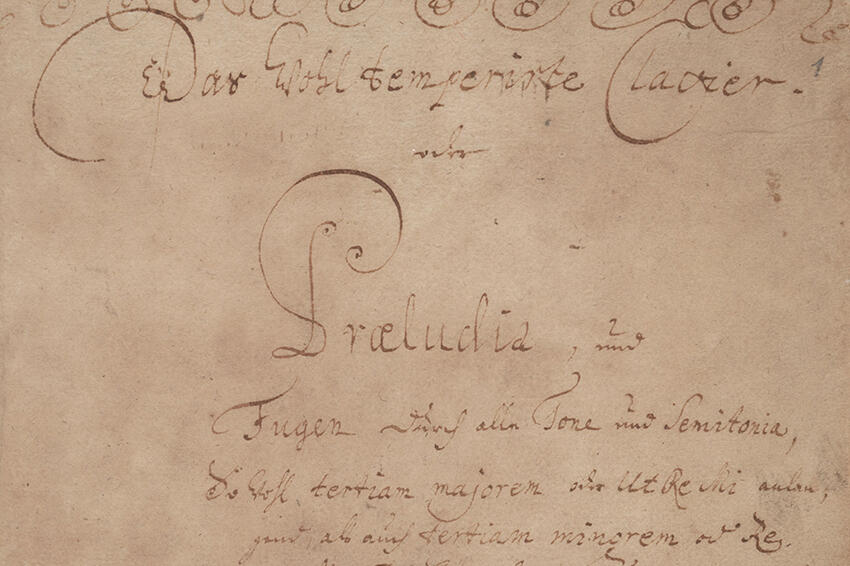 Das Wohltemperirte Clavier.
1
oder
Præludia, und
Fugen durch alle Tone und Semitonia,
So wohl tertiam majorem oder Ut Re Mi anlan,
gend, als auch tertiam minorem od Re